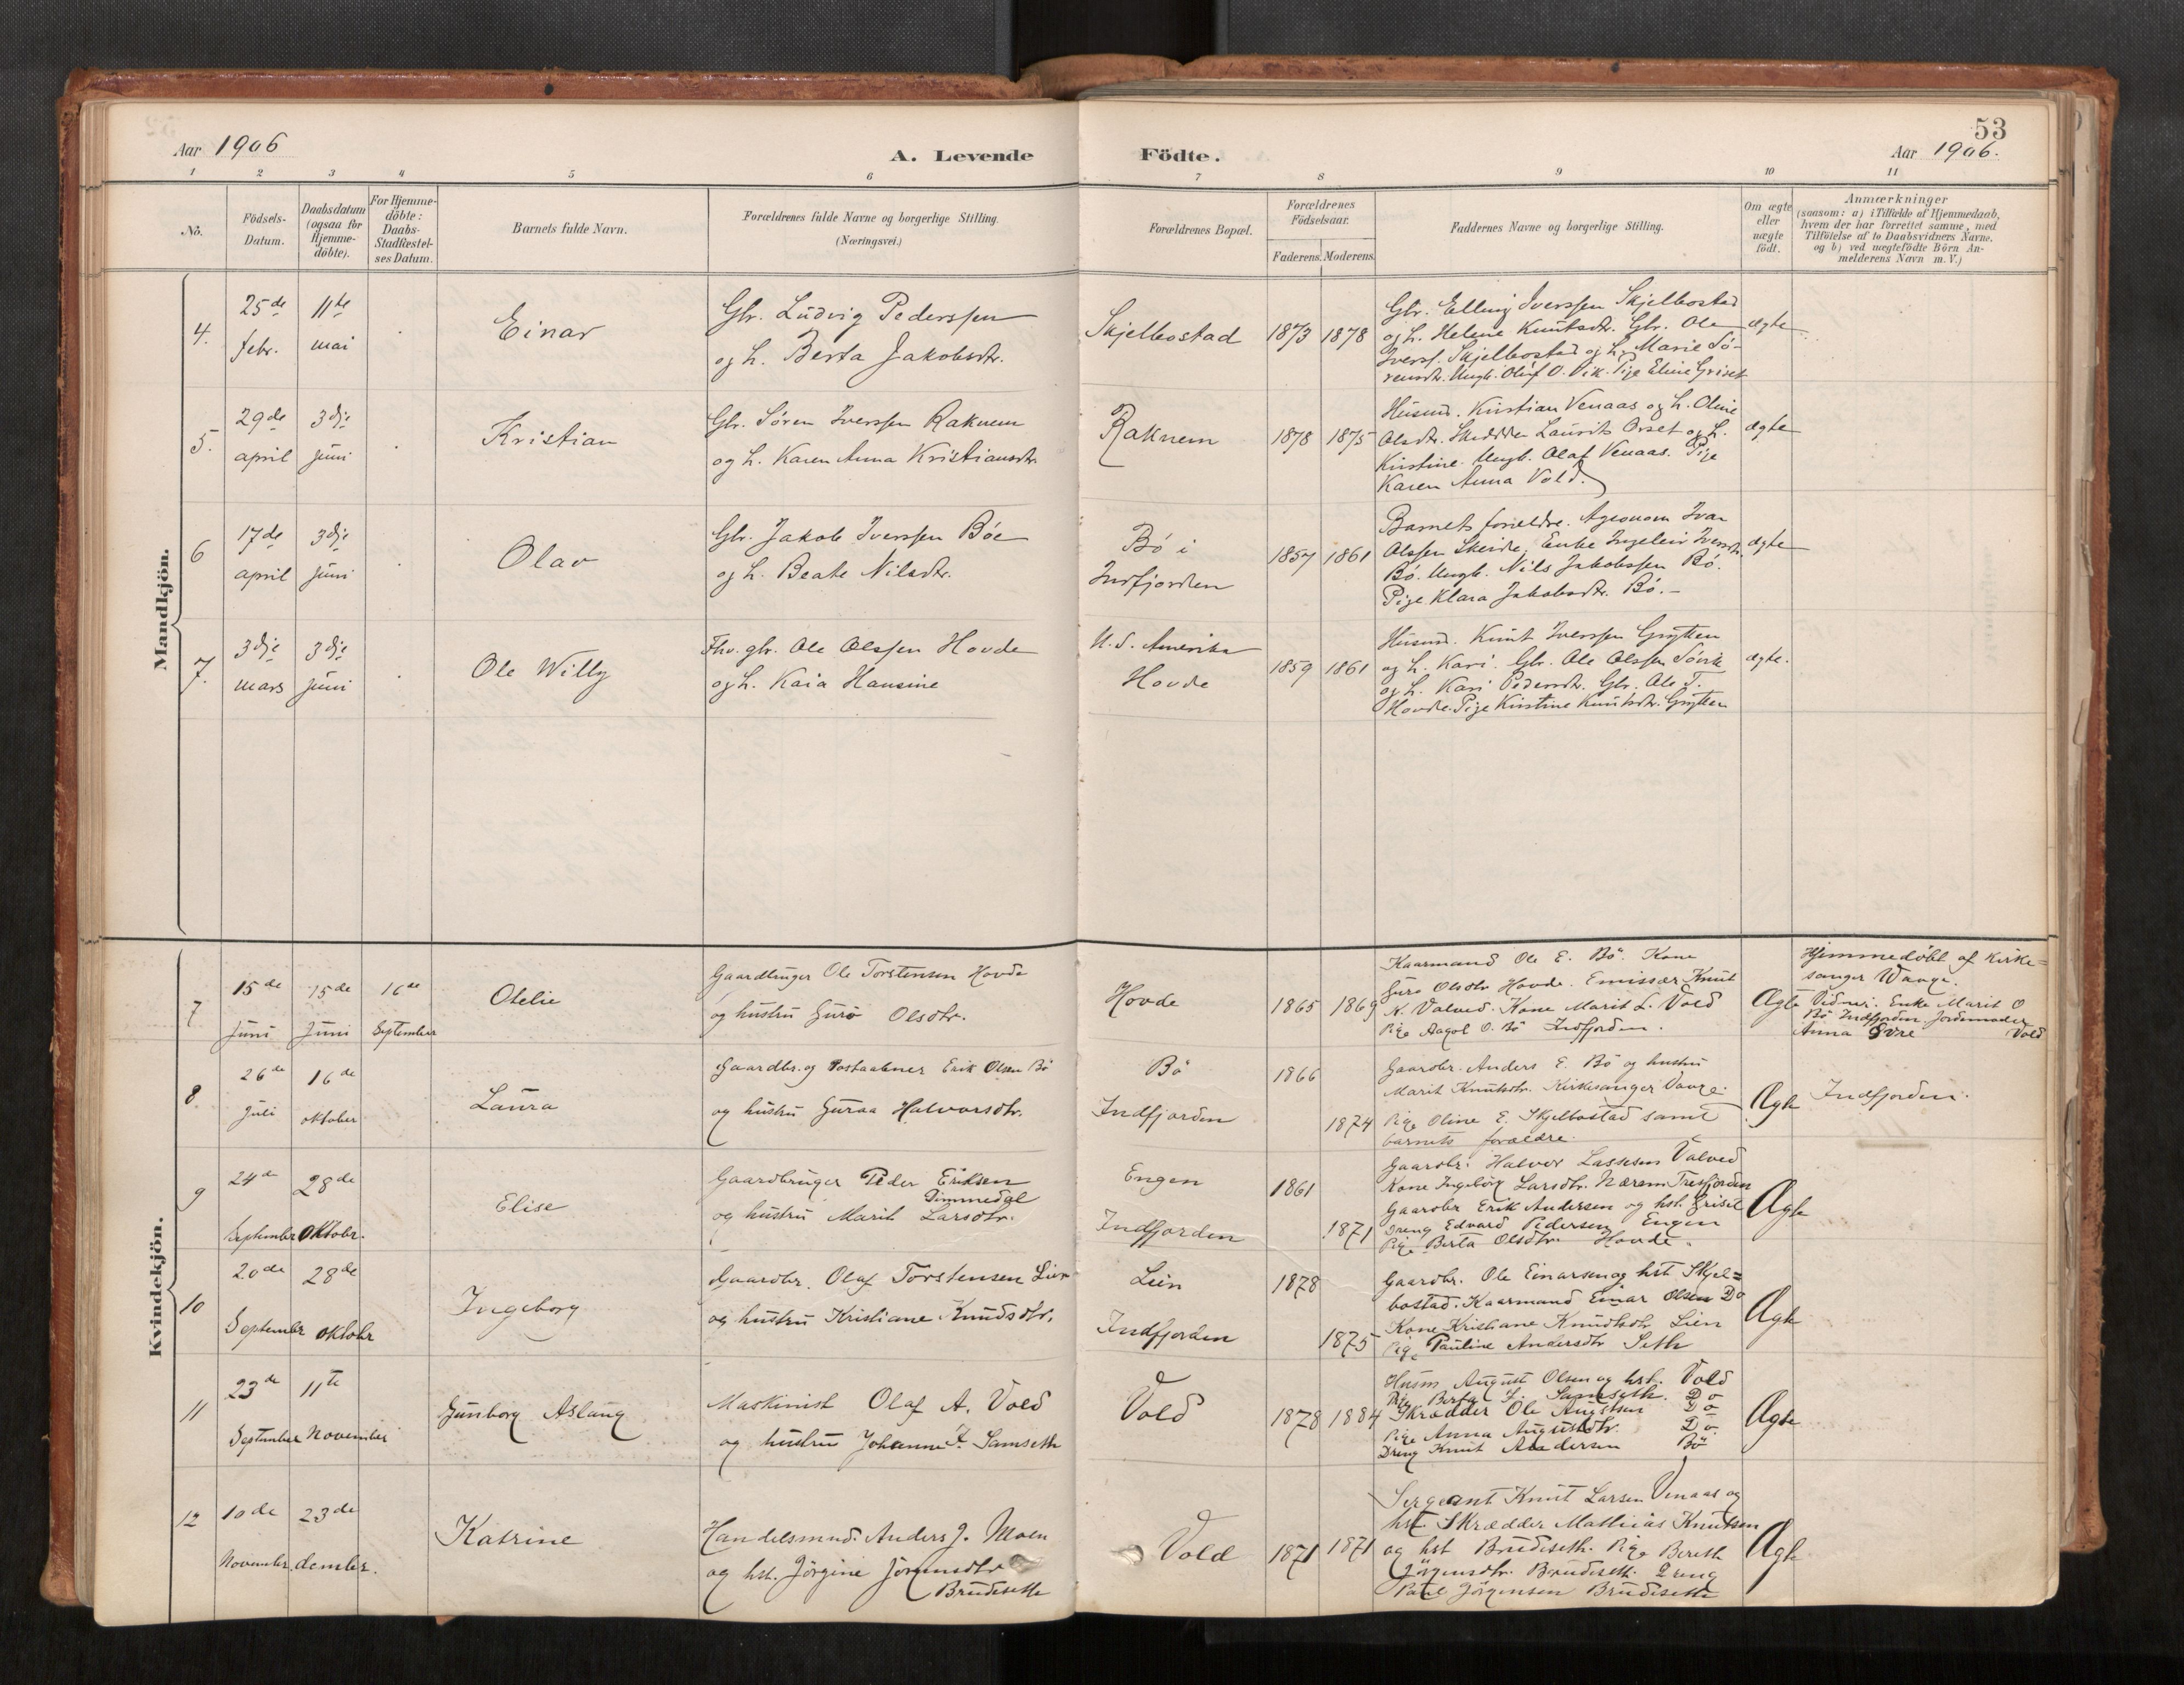 53
Aar 1906
A. Levende Födte.
Aar 1906.
1 2 3 4 5 6 7 8 9 10 11
No.
Födsels-
Datum.
Daabsdatum
(ogsaa for
Hjemme-
döbte).
For Hjemme-
döbte:
Daabs-
Stadfæstel-
ses Datum.
Barnets fulde Navn.
Forældrenes fulde Navne og borgerlige Stilling.
(Næringsvei.)
Forældrenes Bopæl.
Forældrenes
Födselsaar.
Faderens. Moderens.
Faddernes Navne og borgerlige Stilling.
Om ægte
eller
uægte
födt.
Anmærkninger
(saasom: a) i Tilfælde af Hjemmedaab,
hvem der har forrettet samme, med
Tilföielse af to Daabsvidners Navne.
og b) ved uægtefödte Börn An-
melderens Navn m. V.)
Mandkjön.
4.
25de
febr.
11te
mai
Einar
Gbr. Ludvig Pederssen
og h. Berta Jakobsdtr.
Skjelbostad
1873 1878
Gbr. Elling Iverssen Skjelbostad
og h. Helene Knutsdtr. Gbr. Ole
Iverss. Skjelbostad og h. Marie Sö-
rensdtr. Ungk. Oluf O. Vik. Pige Eline Griset
ægte
5.
29de
april
3dje
juni
Kristian
Gbr. Sören Iverssen Raknem
og h. Karen Anna Kristiansdtr.
Raknem
1878 1875
Husmd. Kristian Venaas og h. Oline
Olsdtr. Skrædder Laurits Orset og h.
Kirstine. Ungk. Olaf Venaas. Pige
Karen Anna Vold.
ægte
6
17de
april
3dje
juni
Olav
Gbr. Jakob Iverssen Böe
og h. Beate Nilsdtr.
Bö i
Indfjorden
1857 1861
Barnets forældre. Agronom Ivar
Olssen Skeide. Enke Ingeleiv Iversdtr.
Bö. Ungk. Nils Jakobssen Bö.
Pige Klara Jakobsdtr. Bö.
ægte
7.
3dje
mars
3dje
juni
Ole Willy
Fhv. gbr. Ole Olssen Hovde
og h. Kaia Hansine
U. S. Amerika
Hovde
1859 1861
Husmd. Knut Iverssen Grytten
og h. Kari. Gbr. Ole Olssen Sövik
og h. Kari Pedersdtr. Gbr. Ole T.
Hovde. Pige Kirstine Knutsdtr. Grytten
ægte.
Kvindekjön.
7
15de
Juni
15de
Juni
16de
September
Otelie
Gaardbruger Ole Torstensen Hovde
og hustru Guro Olsdtr.
Hovde
1865 1869
Kaarmand Ole E. Bö. Kone
Guro Olsdtr Hovde. Emissær Knut
K. Valved. Kone Marit L. Vold
Pige Aagot O. Bö Indfjorden.
Ægte
Hjemmedöbt af Kirke=
sanger Vange.
Vidner. Enke Marit O
Bö Indfjorden. Jordemoder
Anna Övre Vold
8.
26de
Juli
16de
oktober
Laura
Gaardbr. og Postaabner Erik Olsen Bö
og hustru Guraa Halvorsdtr.
Bö
Indfjorden
1866
1874
Gaardbr. Anders E. Bö og hustru
Marit Knutsdtr. Kirkesanger Vange.
Pige Oline E. Skjelbostad samt
barnets forældre.
Ægte
Indfjorden.
9
24de
September
28de
Oktobr.
Elise
Gaardbruger Peder Eriksen
Dimmedal
og hustru Marit Larsdtr.
Engen
Indfjorden
1861
1871
Gaardbr. Halvor Lassesen Valved
Kone Ingeborg Larsdtr. Nærem Tresfjorden
Gaardbr Erik Andersen og hst. Griset
Dreng Edvard Pedersen Engen
Pige Berta Olsdtr. Hovde.
Ægte
10
20de
September
28de
oktobr
Ingeborg
Gaardbr. Olaf Torstensen Lien
og hustru Kristiane Knudsdtr.
Lien
Indfjorden
1878
1875
Gaardbr. Ole Einarsen og hst Skjel=
bostad. Kaarmand Einar Olsen Do
Kone Kristiane Knudtsdtr Lien
Pige Pauline Andersdtr Seth
Ægte
11
23de
September
11te
November
Gunborg Aslaug
Maskinist Olaf A. Vold
og hustru Johanne F. Samseth
Vold
1878 1884
Husm August Olsen og hst. Vold
Pige Berta F. Samseth. Do
Skrædder Ole Augustsen Do
Pige Anna Augustdtr. Do.
Dreng Knut Andersen Bö
Ægte
12
10de
November
23de
dember.
Katrine
Handelsmnd. Anders J. Moen
og hst. Jörgine Jörgensdtr
Brudeseth
Vold
1871 1871
Sergeant Knut Larsen Venaas og
hst. Skrædder Mathias Knutsen
og hst Brudeseth. Pige Bereth
Jörgensdtr. Brudeseth. Dreng
Paul Jörgensen Brudeseth
Ægte